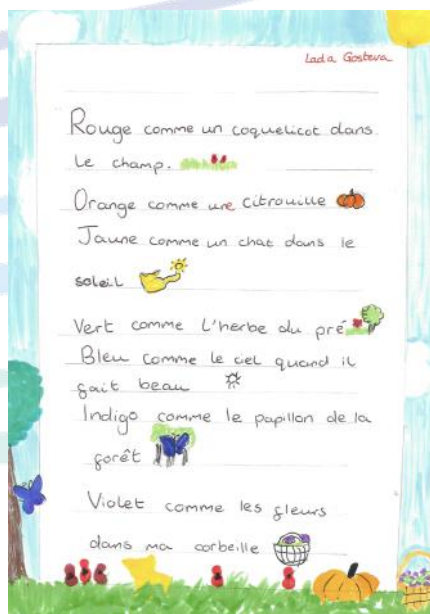 Lada Gosteva
Rouge comme un coquelicot dans
le champ.
Orange comme une citrouille
Jaune comme un chat dans le
soleil
Vert comme l'herbe du pré
Bleu comme le ciel quand il
fait beau
Indigo comme le papillon de la
forêt
Violet comme les fleurs
dans ma corbeille